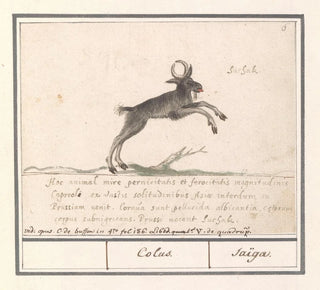 6
Surhak.
Hoc animal mire pernicitatis et ferocitatis magnitudinis
Capreolæ ex vastis solitudinibus Asiæ interdum in
Prussiam venit. Cornua sunt pellucida albicantia, cæterum
corpus subnigricans. Prussi vocant Surhak.
vid. opus C. de Buffon in 4to fol. 186 de quadrup.
Colus.
Saïga.